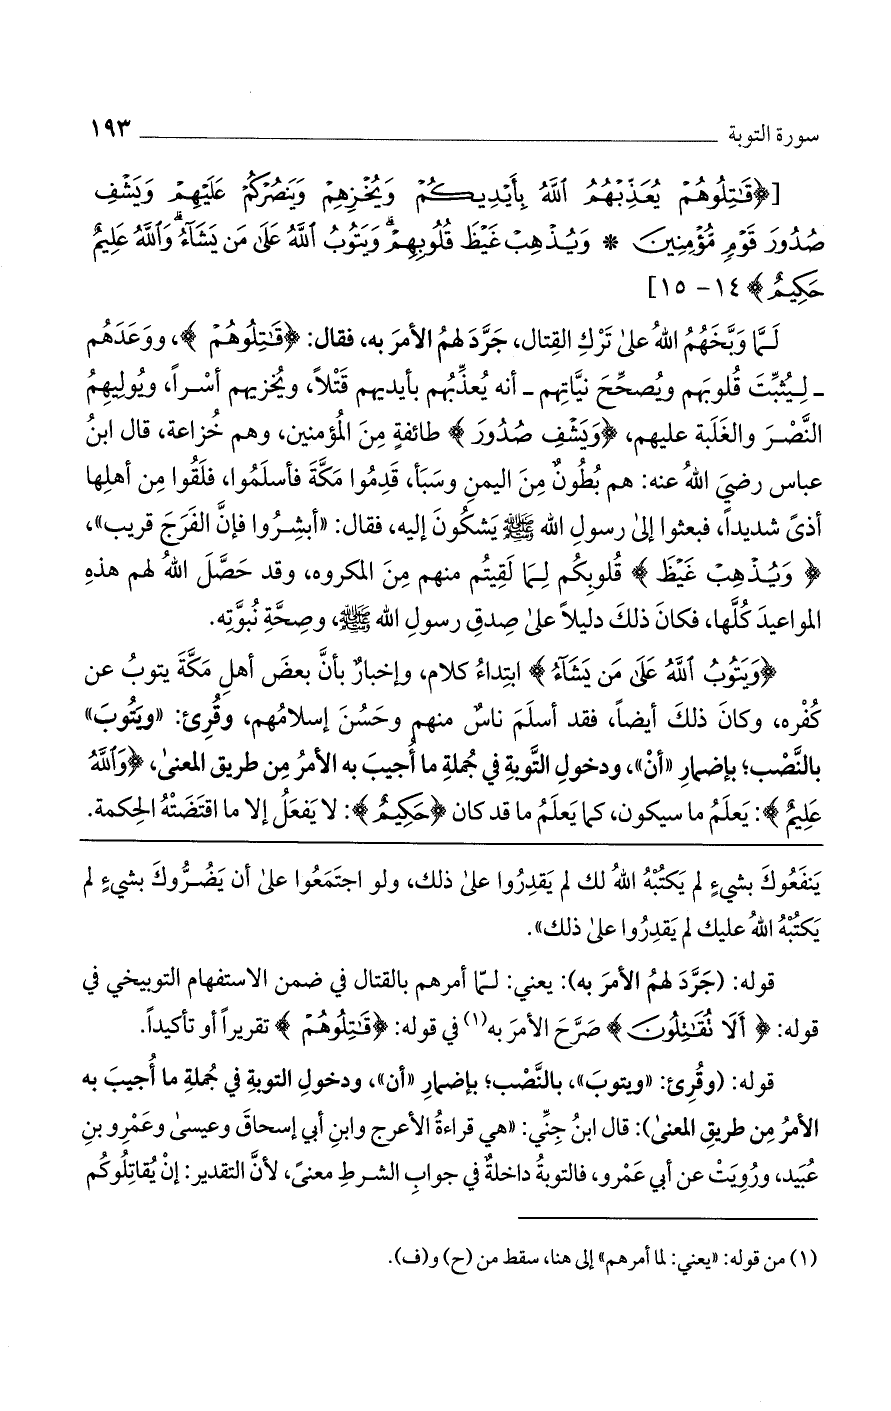 سورة التوبة ١٩٣
[﴿قَٰتِلُوهُمْ يُعَذِّبْهُمُ ٱللَّهُ بِأَيْدِيكُمْ وَيُخْزِهِمْ وَيَنصُرْكُمْ عَلَيْهِمْ وَيَشْفِ
صُدُورَ قَوْمٍ مُّؤْمِنِينَ * وَيُذْهِبْ غَيْظَ قُلُوبِهِمْ ۗ وَيَتُوبُ ٱللَّهُ عَلَىٰ مَن يَشَآءُ ۗ وَٱللَّهُ عَلِيمٌ
حَكِيمٌ﴾ ١٤- ١٥]
لَمَّا وَبَّخَهُمُ اللهُ علىٰ تَرْكِ القِتال، جَرَّدَ لهمُ الأمرَ به، فقال: ﴿قَٰتِلُوهُمْ﴾، ووَعَدَهُم
ـ لِيُثبِّتَ قُلوبَهم ويُصحِّحَ نيَّاتِهم ـ أنه يُعذِّبُهم بأيديهم قَتْلاً، ويُخزيهم أسْراً، ويُولِيهِمُ
النَّصْرَ والغَلَبة عليهم، ﴿وَيَشْفِ صُدُورَ﴾ طائفةٍ مِنَ المُؤمنين، وهم خُزاعة، قال ابنُ
عباس رضيَ اللهُ عنه: هم بُطُونٌ مِنَ اليمنِ وسَبَأ، قَدِمُوا مَكَّةَ فأسلَمُوا، فلَقُوا مِن أهلِها
أذىً شديداً، فبعثوا إلىٰ رسولِ الله ﷺ يَشكُونَ إليه، فقال: «أبشِرُوا فإنَّ الفَرَجَ قريب»،
﴿وَيُذْهِبْ غَيْظَ﴾ قُلوبِكُم لِمَا لَقِيتُم منهم مِنَ المكروه، وقد حَصَّلَ اللهُ لهم هذهِ
المواعيدَ كُلَّها، فكانَ ذلكَ دليلاً علىٰ صِدقِ رسولِ الله ﷺ، وصِحَّةِ نُبوَّتِه.
﴿وَيَتُوبُ ٱللَّهُ عَلَىٰ مَن يَشَآءُ﴾ ابتِداءُ كلام، وإخبارٌ بأنَّ بعضَ أهلِ مَكَّةَ يتوبُ عن
كُفْرِه، وكانَ ذلكَ أيضاً، فقد أسلَمَ ناسٌ منهم وحَسُنَ إسلامُهم، وقُرِئ: «ويَتُوبَ»
بالنَّصْب؛ بإضمارِ «أنْ»، ودخولِ التَّوبةِ في جُملةِ ما أُجيبَ به الأمرُ مِن طريقِ المعنىٰ، ﴿وَٱللَّهُ
عَلِيمٌ﴾: يَعلَمُ ما سيكون، كما يَعلَمُ ما قد كان ﴿حَكِيمٌ﴾: لا يَفعَلُ إلا ما اقتَضَتْهُ الحِكمة.
يَنفَعُوكَ بشيءٍ لم يَكتُبْهُ اللهُ لك لم يَقدِرُوا علىٰ ذلك، ولو اجتَمَعُوا علىٰ أن يَضُرُّوكَ بشيءٍ لم
يَكتُبْهُ اللهُ عليك لم يَقدِرُوا علىٰ ذلك».
قوله: (جَرَّدَ لهمُ الأمرَ به): يعني: لمّا أمرهم بالقتال في ضمن الاستفهام التوبيخي في
قوله: ﴿أَلَا تُقَٰتِلُونَ﴾ صَرَّحَ الأمرَ به(١) في قوله: ﴿قَٰتِلُوهُمْ﴾ تقريراً أو تأكيداً.
قوله: (وقُرِئ: «ويتوبَ»، بالنَّصْب؛ بإضمارِ «أن»، ودخولِ التوبةِ في جُملةِ ما أُجيبَ به
الأمرُ مِن طريقِ المعنىٰ): قال ابنُ جِنِّي: «هي قراءةُ الأعرج وابنِ أبي إسحاقَ وعيسىٰ وعَمْرِو بنِ
عُبَيد، ورُوِيَتْ عن أبي عَمْرو، فالتوبةُ داخلةٌ في جوابِ الشرطِ معنىً، لأنَّ التقدير: إنْ يُقاتِلُوكُم
(١) من قوله: «يعني: لما أمرهم» إلى هنا، سقط من (ح) و(ف).